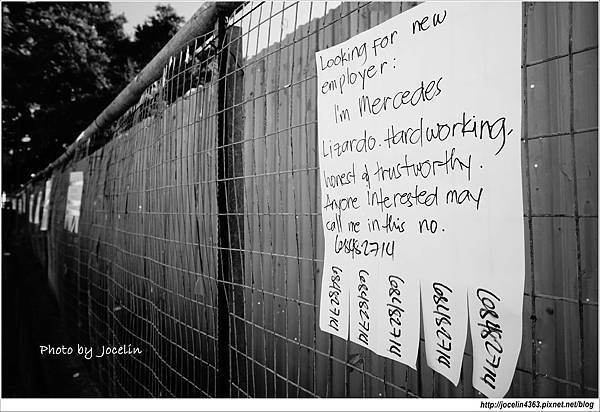 Looking for new
employer:
I'm Mercedes
Lizardo. Hardworking,
honest & trustworthy.
Anyone Interested may
call me in this no.
68482714
68482714
68482714
68482714
68482714
68482714
Photo by Jocelin
http://jocelin4363.pixnet.net/blog